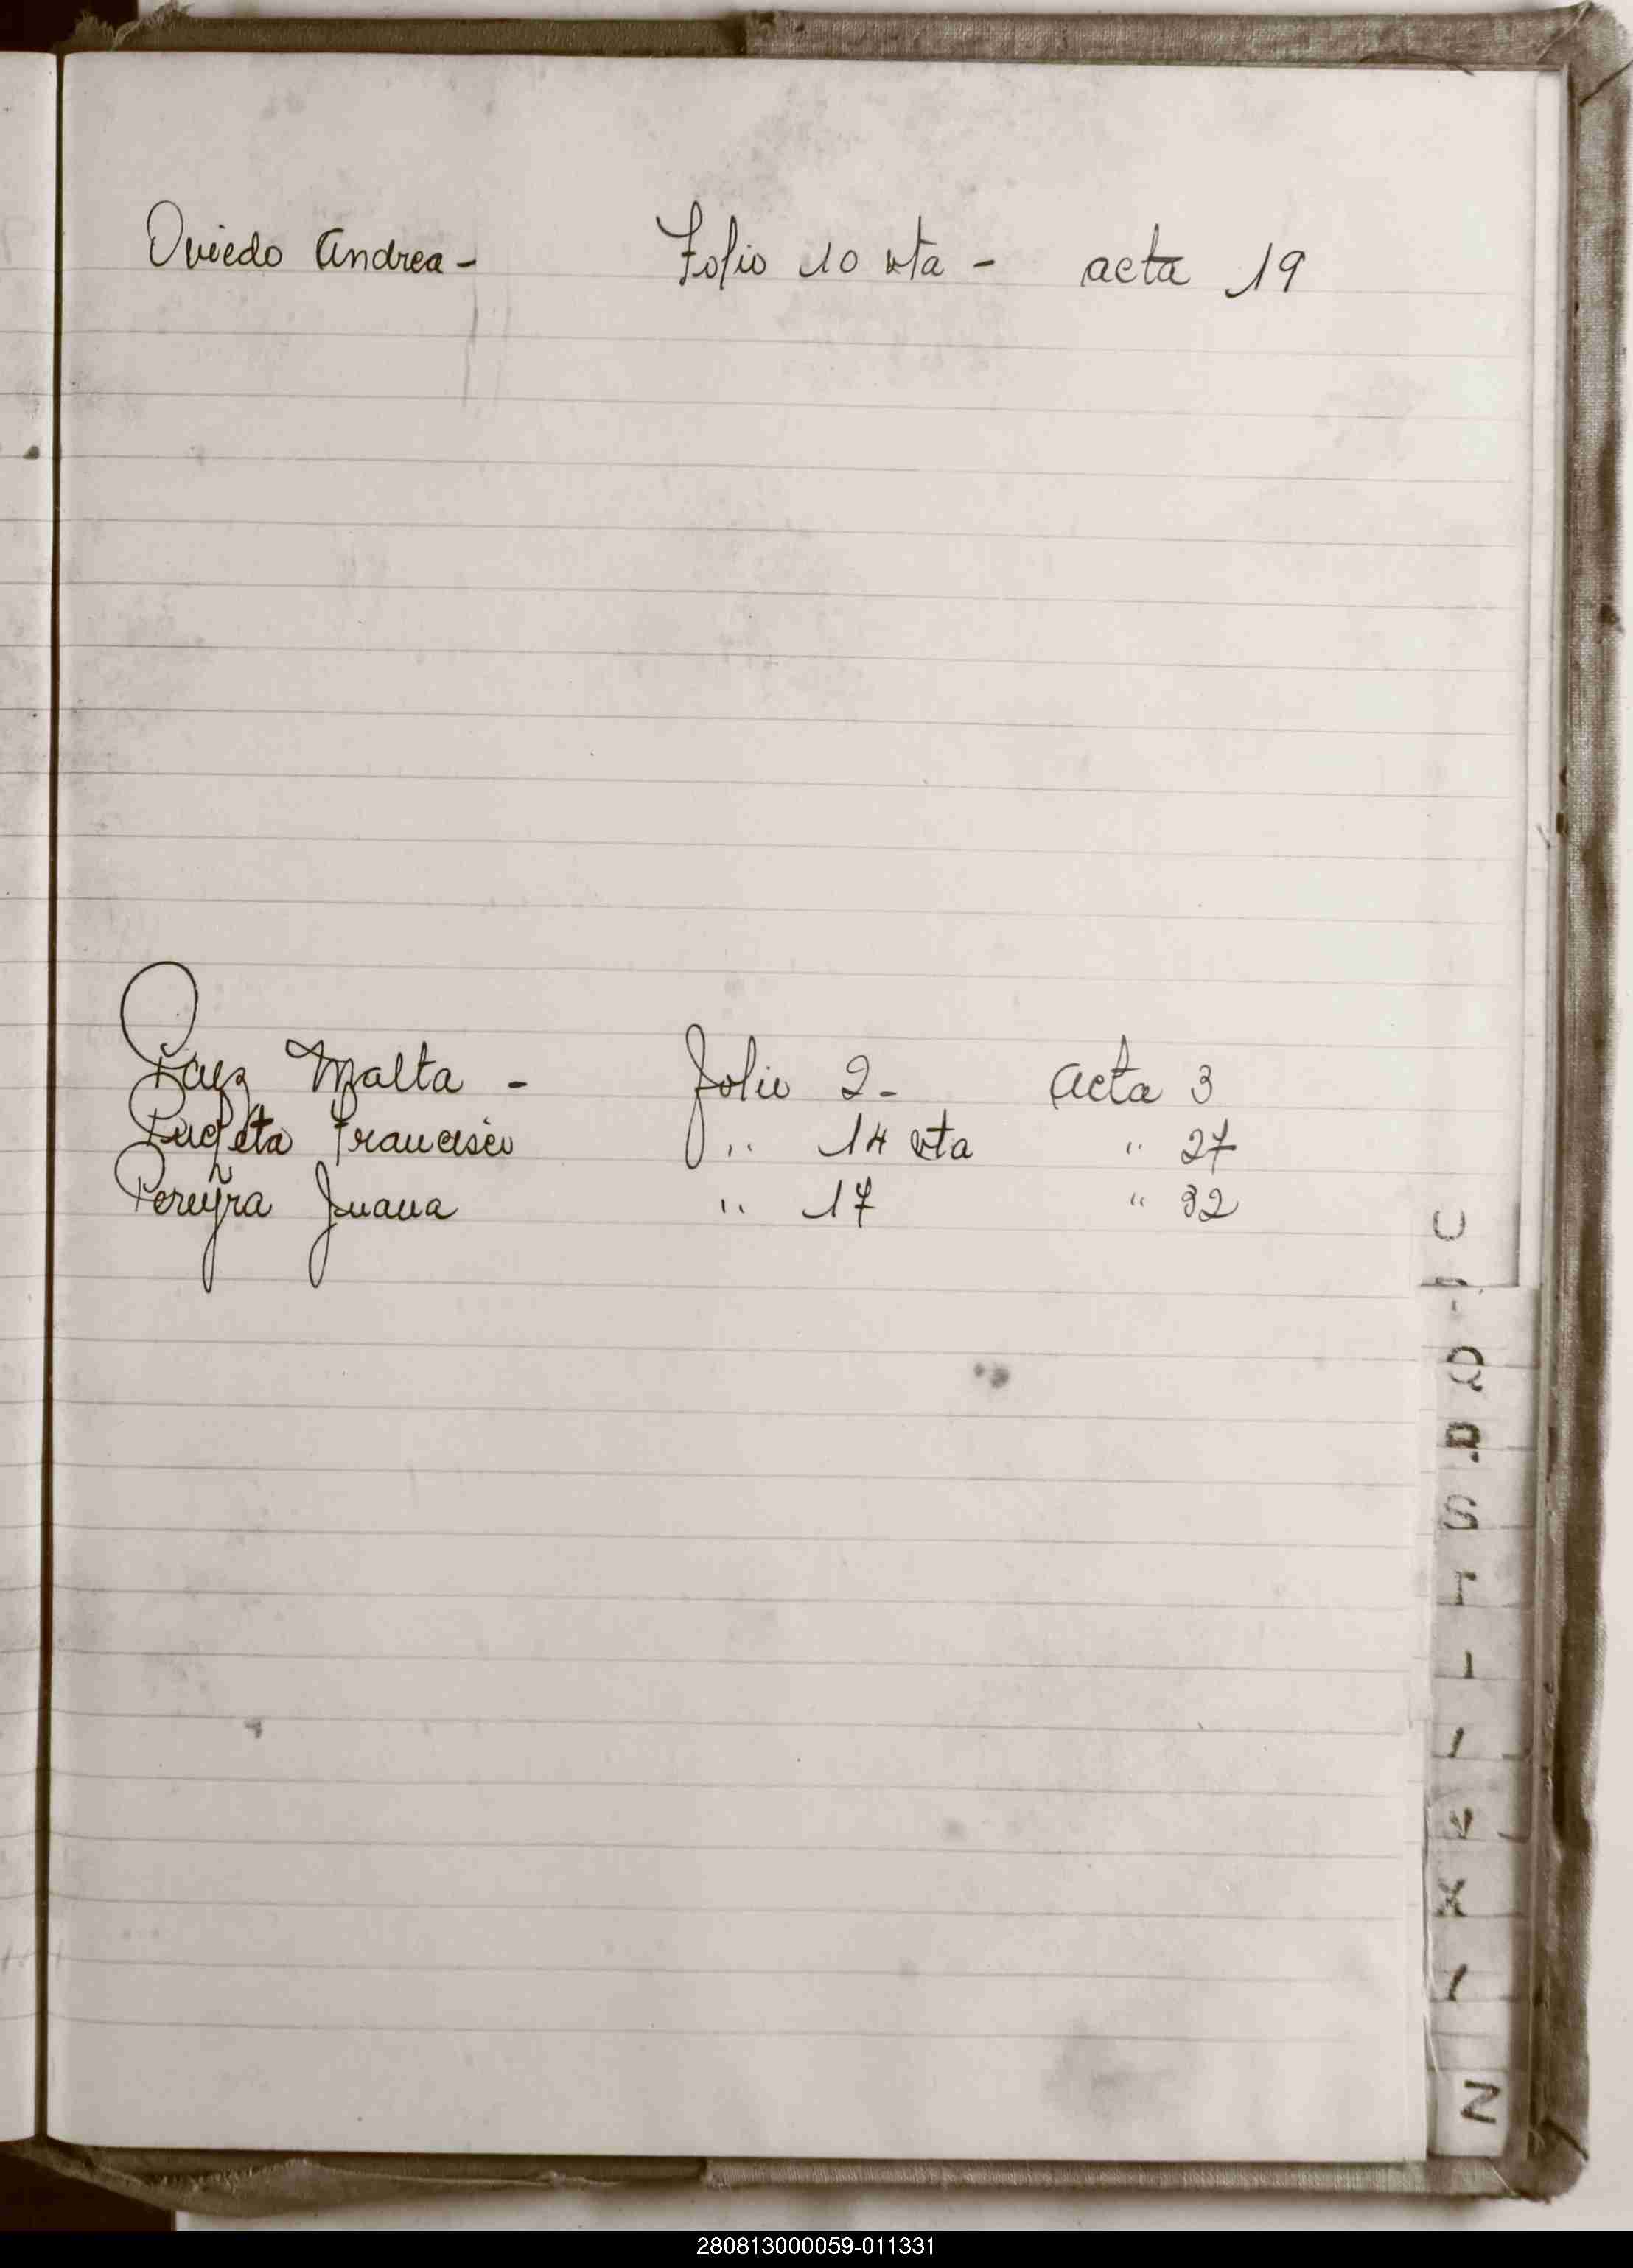 Oviedo Andrea - Folio 10 vta - acta 19
Paez Malta - folio 2 - acta 3
Francisco " 14 vta " 27
Pereyra Juana " 17 " 32
O
Q
R
S
T
V
X
Z
280813000059-011331